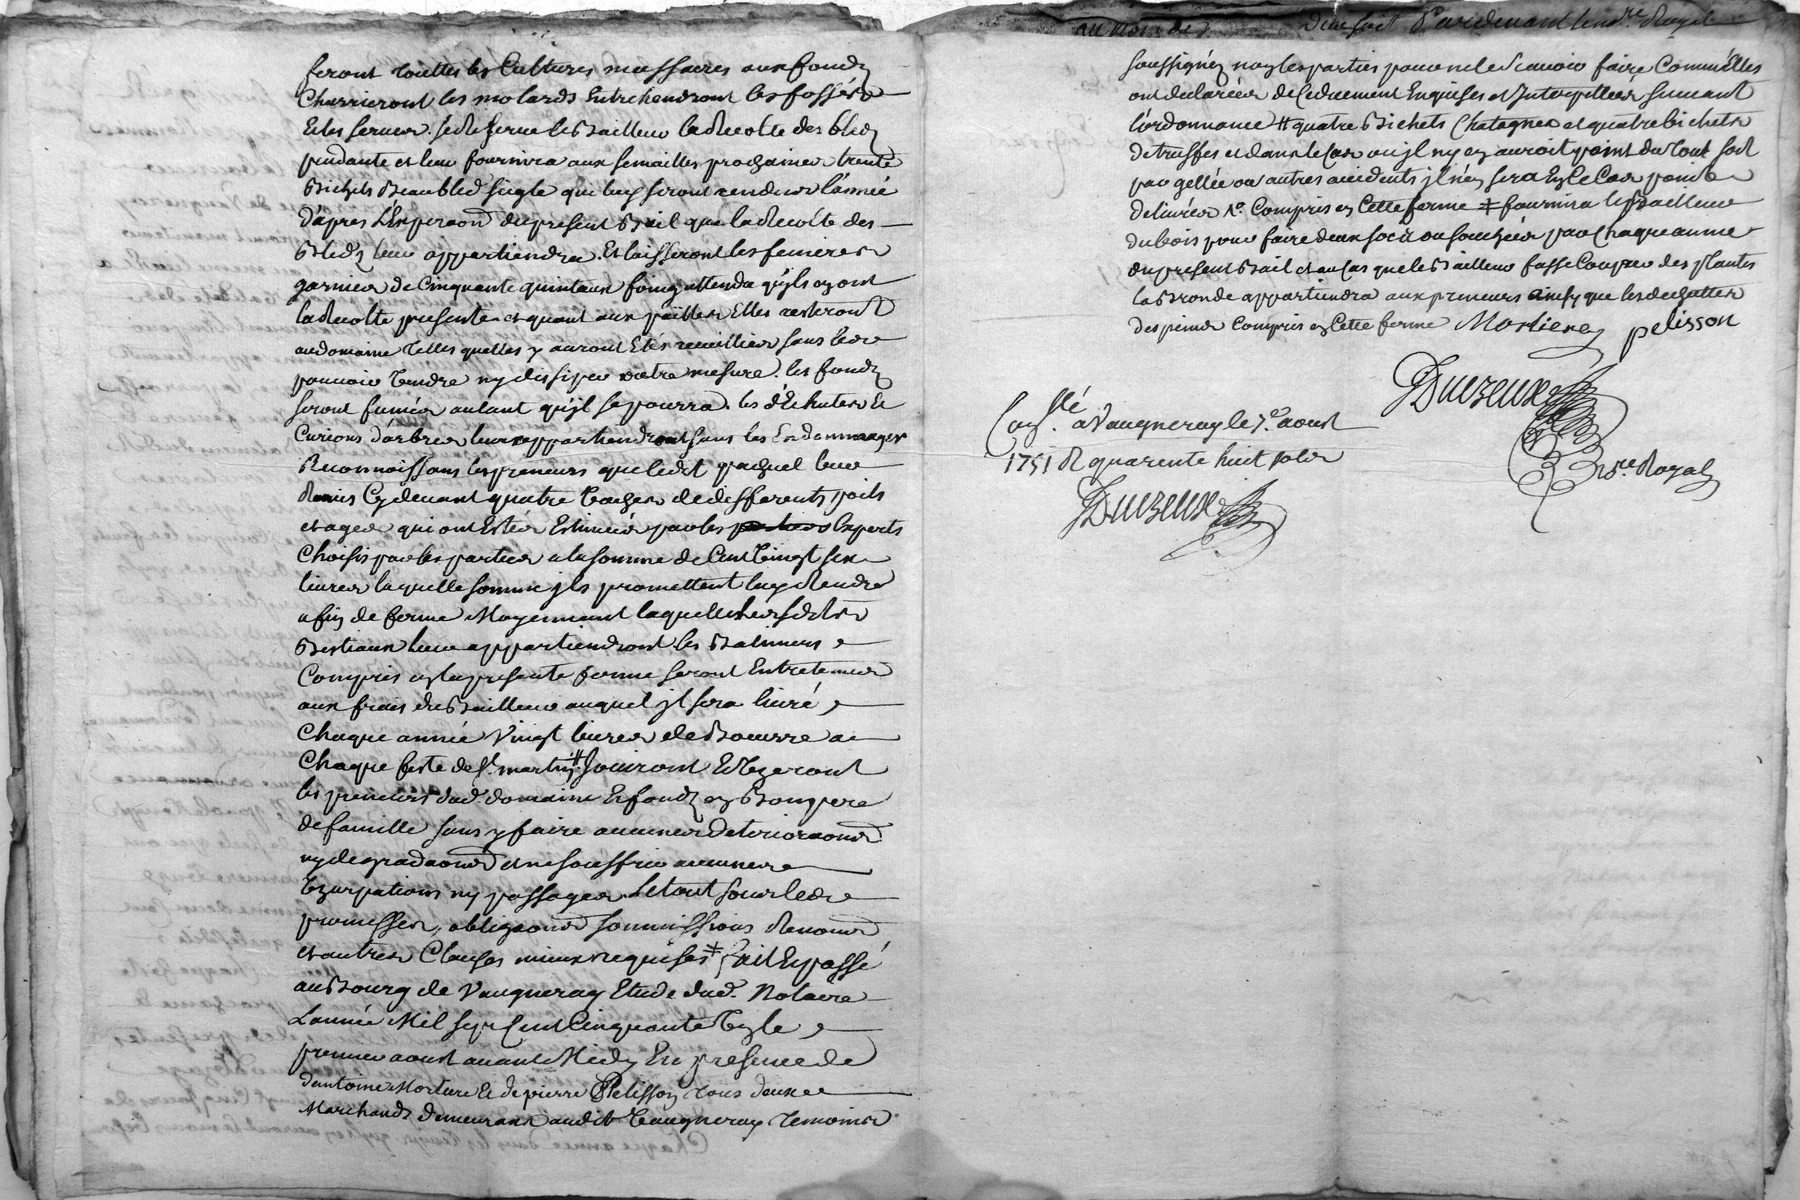 feront touttes les Cultures necessaires aux fondz
Charrieront les molards Entretiendront les fossés
Et les serves. se reserve le Bailleur la Recolte des bledz
pendante et leur fournira aux semailles prochaines trente
Bichets Beau bled siegle que luy seront rendus l'année
d'apres L'Expiraon du present Bail que la Recolte des
Bledz leur appartiendra. Et laisseront les fenieres
garnies de Cinquante quintaux foing attendu qu'jls ayont
la Recolte presente et quant aux pailles Elles resteront
au domaine telles quelles y auront Etés recueillies sans les
pouvoir vendre ny dissiper outre mesure. les fondz
seront fumés autant qu'jl se pourra. les d'Echutes Et
Curions d'arbres leurs appartiendront sans les Endommager
Reconnoissans les preneurs que ledit paquel leur
Remis Cy devant quatre vaches de differents poils
et ages qui ont Estés Estimés par les Experts
Choisis par les parties a la somme de Cent vingt six
livres laquelle somme jls promettent luy Rendre
a fin de ferme Moyennant laquelle lesdits
Bestiaux leur appartiendront les Batimens
Compris en la presente ferme seront Entretenus
aux frais du Bailleur auquel jl sera livré
Chaque année Vingt livres de Beurre a
Chaque feste de St. martin # Jouiront Et Uzeront
les preneurs dud. domaine Et fondz en Bon pere
de famille sans y faire aucunes deterioraons
ny degradaons et ne souffrir aucunes
Uzurpations ny passages Le tout sous les
promesses, obligaons soumissions Renons
et autres Clauses mieux requises ‡ fait Et passé
au Bourg de Vaugneray Etude dud. Notaire
L'année Mil sept Cent Cinquante Un le
premier aoust avant Midy En presence de
d'antoine Et de pierre Pelisson tous deux
Marchands demeurant audit Vaugneray temoins
au nom de
soussignés non les parties pour ne le scavoir faire Comm'Elles
ont declarées de Ce duement Enquises et Interpellées suivant
l'ordonnance # quatre Bichets Chatagnes et quatre bichets
de truffes et dans le Cas ou jl n'y en auroit point du tout soit
par gellée ou autres accidents jl n'en sera En Ce Cas point
delivrées Compris en Cette ferme ‡ fournira le Bailleur
du bois pour faire deux par Chaque année
du present Bail et au Cas que le Bailleur fasse Couper des plantes
la Bronde appartiendra aux preneurs ainsy que les dechattes
des pins Compris en Cette ferme pelisson
Duvzeux
nre. Royal
Conslé. a Vaugneray le 7e. aoust
1751 R quarente huit sols
Duvzeux